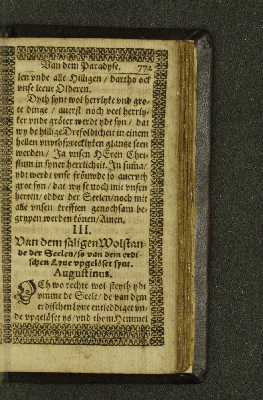 Van dem Paradyse. 772
len vnde alle Hilligen / dartho ock
vnse leeue Olderen.
Dyth synt wol herrlyke vnd gro-
te dinge / auerst noch veel herrly-
ker vnde gröter werdt ydt syn / dat
wy de hillige Drefoldicheit in einem
hellen vnvthsprecklyken glantze seen
werden / Ja vnsen HEren Chri-
stum in syner herrlicheit. In suma /
ydt werdt vnse fröuwde so auervth
grot syn / dat wy se noch mit vnsen
herten / edder der Seelen / noch mit
alle vnsen krefften genochsam be-
grypen werden könen / Amen.
III.
Van dem säligen Wolstan-
de der Seelen / so van dem erdi-
schen Lyue vpgelöset synt.
Augustinus.
Och wo rechte wol steyth ydt
vmme de Seele / de van dem
erdischen Lyue entlediget vn-
de vpgelöset ys / vnd them Hemmel